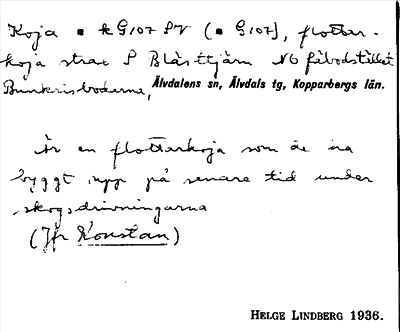 Koja ▪ k G107 SV (▪ G107), flottar-
koja strax S Blästtjärn NO fäbodstället
Bunkrisbodarna, Älvdalens sn, Älvdals tg, Kopparbergs län.
Är en flottarkoja som de ha
byggt upp på senare tid under
skogsdrivningarna
(Jfr Konstan)
HELGE LINDBERG 1936.